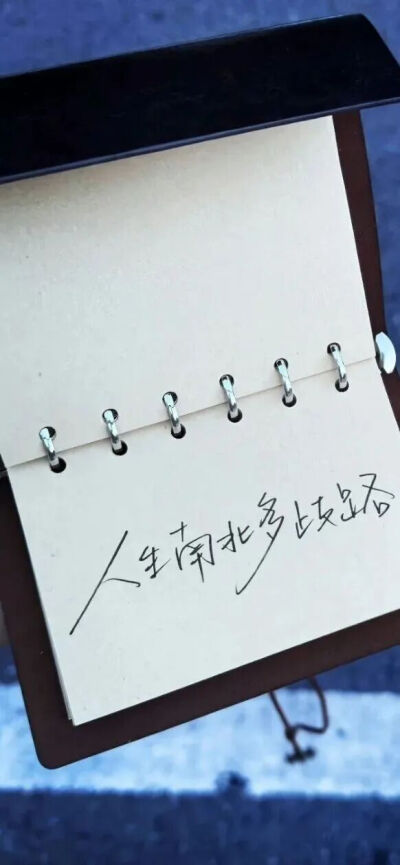 人生南北多歧路